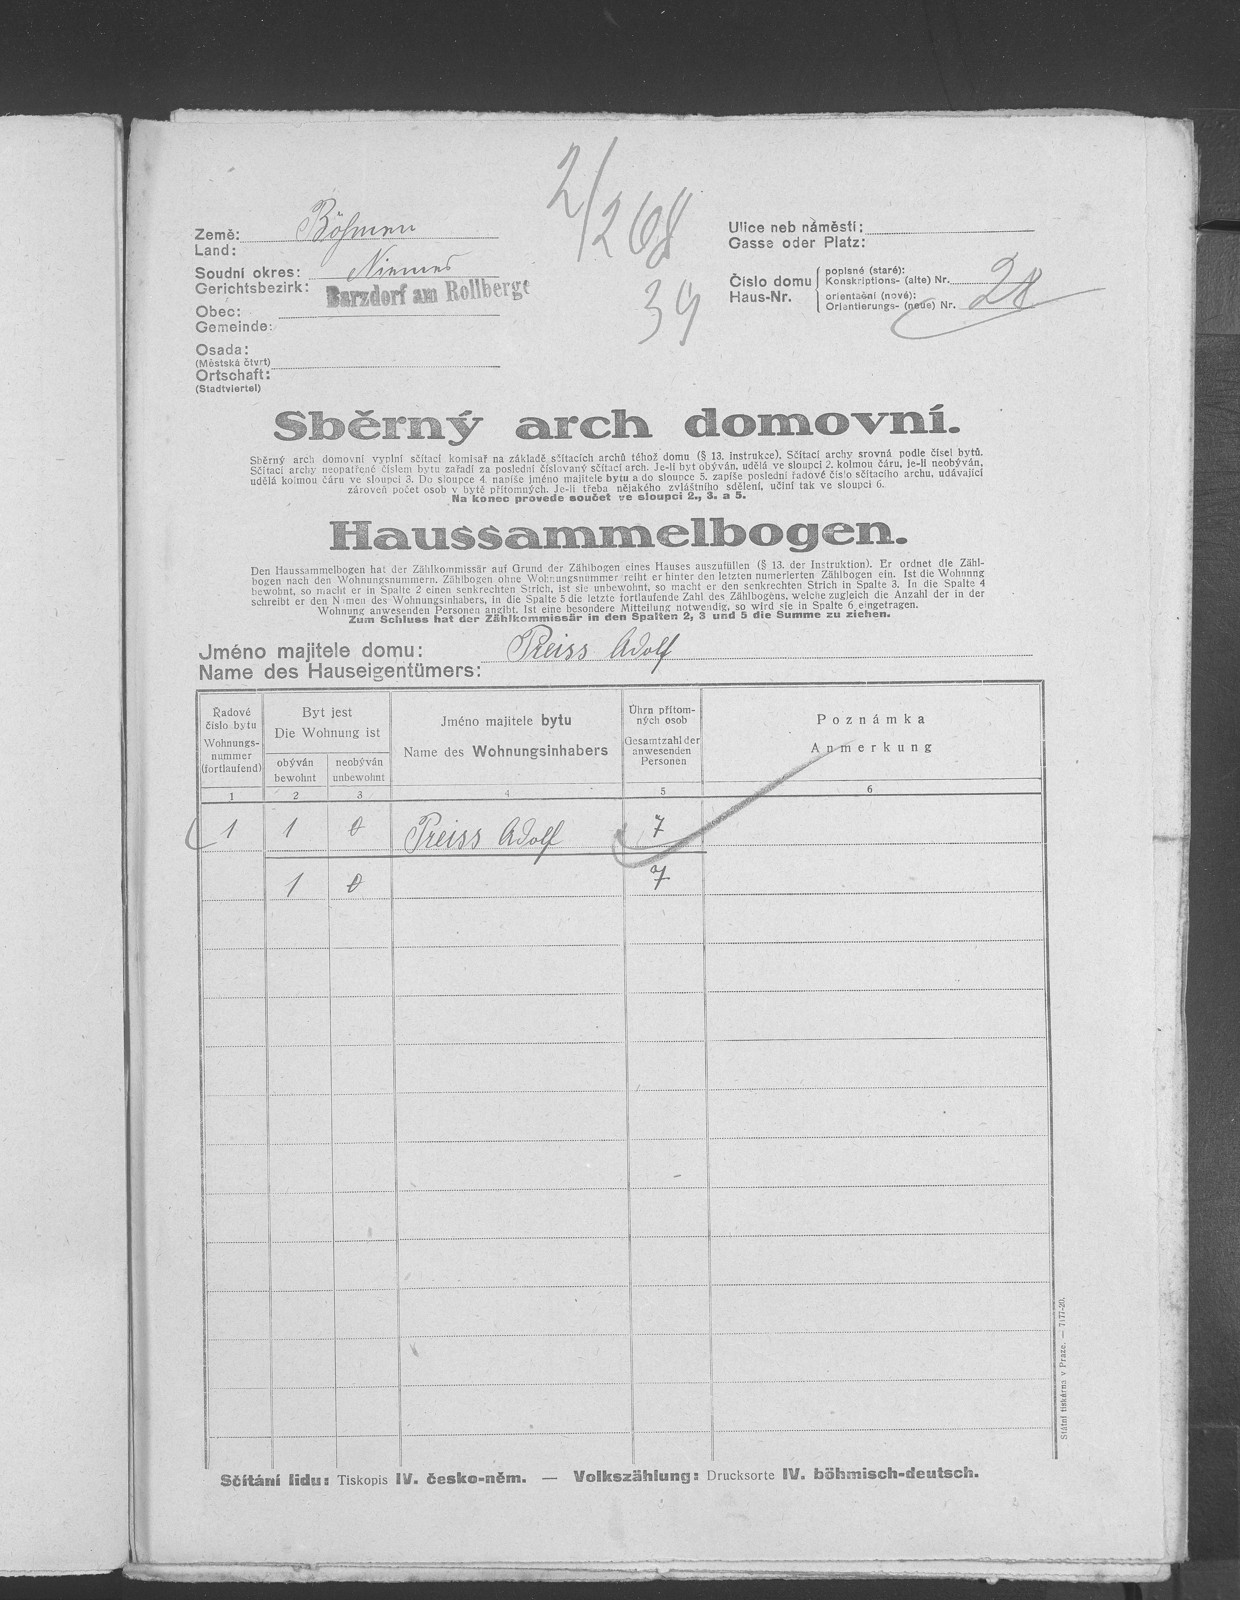 2/268
39
Země: Böhmen
Land:
Soudní okres: Niemes
Gerichtsbezirk:
Barzdorf am Rollberge
Obec:
Gemeinde:
Osada:
(Městská čtvrt)
Ortschaft:
(Stadtviertel)
Ulice neb náměstí:
Gasse oder Platz:
Číslo domu
Haus-Nr.
popisné (staré):
Konskriptions- (alte) Nr.
orientační (nové):
Orientierungs- (neue) Nr.
28
Sběrný arch domovní.
Sběrný arch domovní vyplní sčítací komisař na základě sčítacích archů téhož domu (§ 13. instrukce). Sčítací archy srovná podle čísel bytů.
Sčítací archy neopatřené číslem bytu zařadí za poslední číslovaný sčítací arch. Je-li byt obýván, udělá ve sloupci 2. kolmou čáru, je-li neobýván,
udělá kolmou čáru ve sloupci 3. Do sloupce 4. napíše jméno majitele bytu a do sloupce 5. zapíše poslední řadové číslo sčítacího archu, udávající
zároveň počet osob v bytě přítomných. Je-li třeba nějakého zvláštního sdělení, učiní tak ve sloupci 6.
Na konec provede součet ve sloupci 2., 3. a 5.
Haussammelbogen.
Den Haussammelbogen hat der Zählkommissär auf Grund der Zählbogen eines Hauses auszufüllen (§ 13. der Instruktion). Er ordnet die Zähl-
bogen nach den Wohnungsnummern. Zählbogen ohne Wohnungsnummer reiht er hinter den letzten numerierten Zählbogen ein. Ist die Wohnung
bewohnt, so macht er in Spalte 2 einen senkrechten Strich, ist sie unbewohnt, so macht er den senkrechten Strich in Spalte 3. In die Spalte 4
schreibt er den Namen des Wohnungsinhabers, in die Spalte 5 die letzte fortlaufende Zahl des Zählbogens, welche zugleich die Anzahl der in der
Wohnung anwesenden Personen angibt. Ist eine besondere Mitteilung notwendig, so wird sie in Spalte 6 eingetragen.
Zum Schluss hat der Zählkommissär in den Spalten 2, 3 und 5 die Summe zu ziehen.
Jméno majitele domu: Preiss Adolf
Name des Hauseigentümers:
Řadové
číslo bytu
Wohnungs-
nummer
(fortlaufend)
Byt jest
Die Wohnung ist
obýván
bewohnt
neobýván
unbewohnt
Jméno majitele bytu
Name des Wohnungsinhabers
Úhrn přítom-
ných osob
Gesamtzahl der
anwesenden
Personen
Poznámka
Anmerkung
1 2 3 4 5 6
1 1 0 Preiss Adolf 7
1 0 7
Sčítání lidu: Tiskopis IV. česko-něm. — Volkszählung: Drucksorte IV. böhmisch-deutsch.
Státní tiskárna v Praze. — 7177-20.